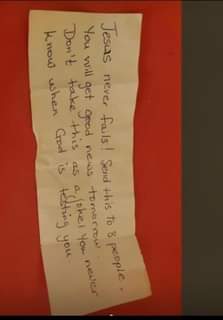 Jesus never fails! Send this to 8 people.
You will get good news tomorrow.
Don't take this as a joke! You never
know when God is testing you.